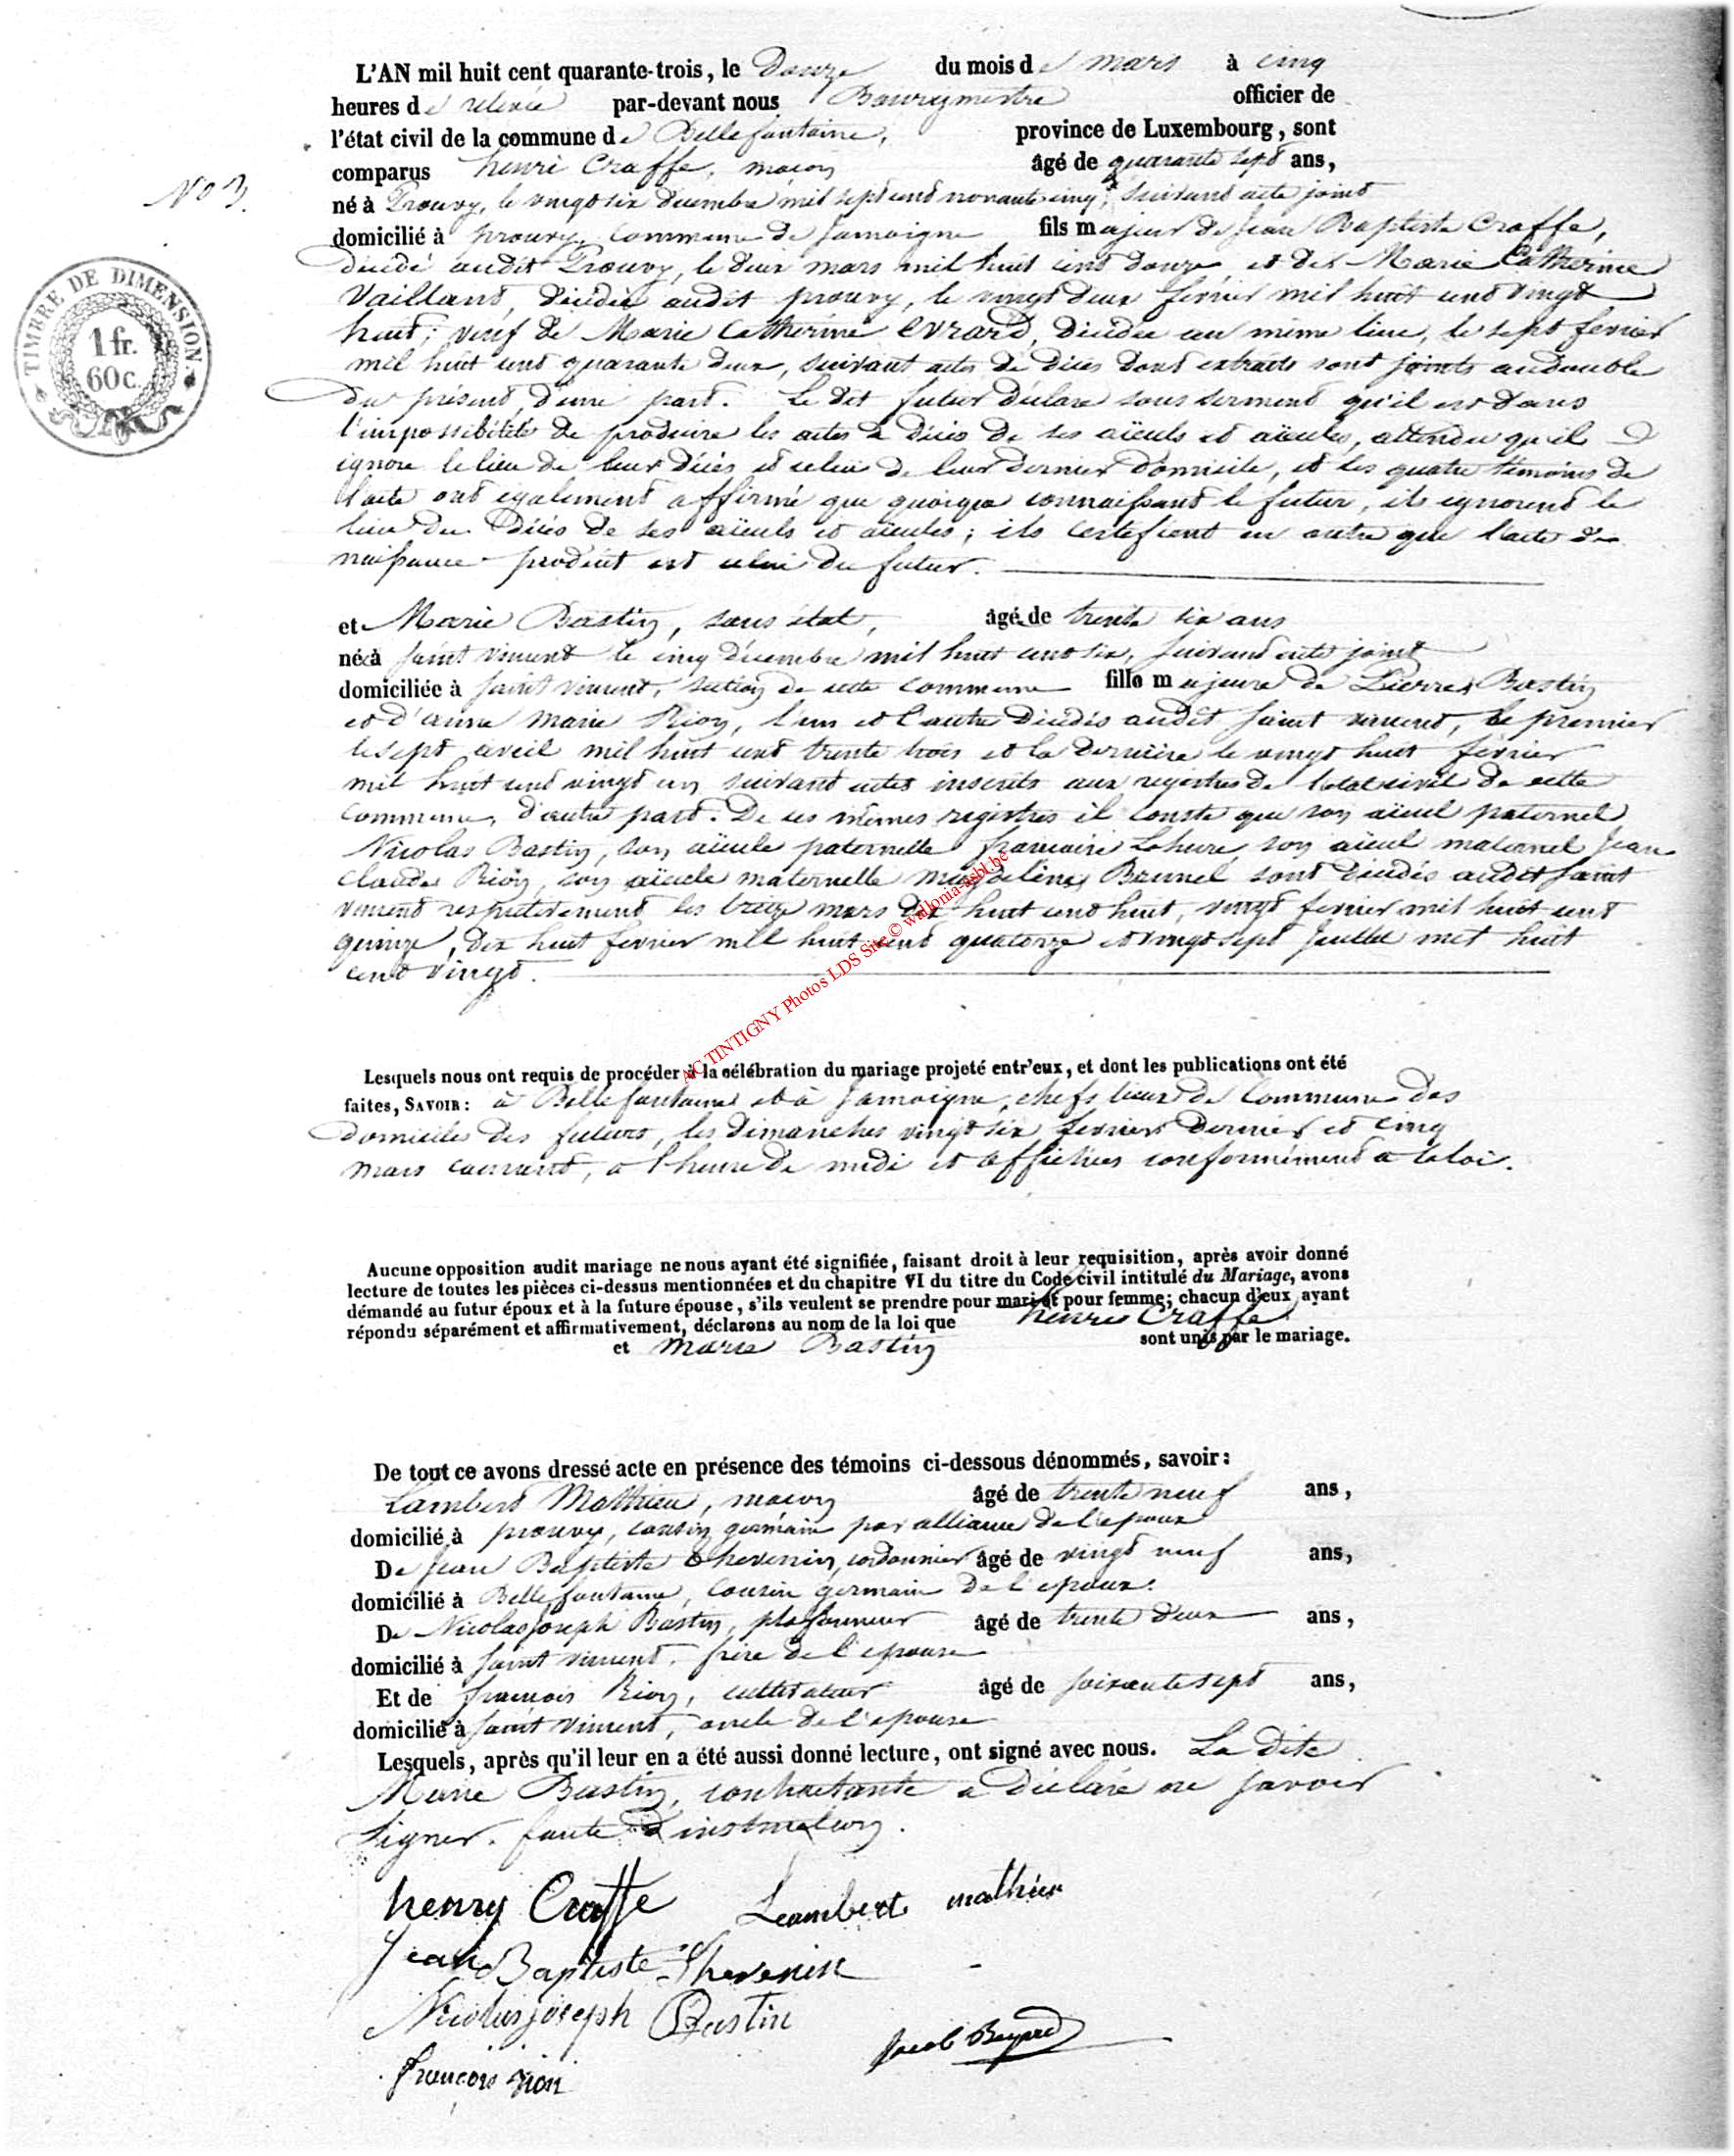 L'AN mil huit cent quarante-trois, le Douze du mois de mars à cinq
heures de relevée par-devant nous Bourgmestre officier de
l'état civil de la commune de Bellefontaine, province de Luxembourg, sont
comparus henri Craffe, maçon âgé de quarante sept ans,
No 3.
né à Prouvy, le vingt six decembre mil sept cent novante cinq, suivant acte joint
domicilié à prouvy, commune de Jamoigne fils majeur de Jean Baptiste Craffe,
décédé audit Prouvy, le deux mars mil huit cent douze et de Marie Catherine
Vaillant, décédée audit prouvy, le vingt deux fevrier mil huit cent vingt
huit; veuf de Marie Catherine Evrard, décédée au même lieu, le sept fevrier
mil huit cent quarante deux, suivant actes de décès dont extraits sont joints au double
du présent, d'une part. Le dit futur déclare sous serment qu'il est dans
l'impossibilité de produire les actes de décès de ses aïeuls et aïeules, attendu qu'il
ignore le lieu de leur décès et celui de leur dernier domicile, et les quatre témoins de
l'acte ont egalement affirmé que quoique connaissant le futur, ils ignorent le
lieu du décès de ses aïeuls et aïeules; ils certifient en outre que l'acte de
naissance produit est celui du futur.
TIMBRE DE DIMENSION.
1 fr.
60 c.
et Marie Bastin, sans état, âgé de trente six ans
née à Saint vincent le cinq décembre mil huit cent six, suivant acte joint
domiciliée à Saint vincent, section de cette commune fille majeure de Pierre Bastin
et d'anne marie Rion, l'un et l'autre décédés audit Saint vincent, le premier
le sept avril mil huit cent trente trois et la dernière le vingt huit fevrier
mil huit cent vingt un suivant actes inscrits aux registres de l'etat civil de cette
commune, d'autre part. De ces mêmes registres il conste que son aïeul paternel
Nicolas Bastin, son aïeule paternelle françoise Lahure, son aïeul maternel Jean
Claude Rion, son aïeule maternelle magdelène Brunel sont décédés audit Saint
vincent respectivement les treize mars dix huit cent huit, vingt fevrier mil huit cent
quinze, dix huit fevrier mil huit cent quatorze et vingt sept Juillet mil huit
cent vingt.
AC TINTIGNY Photos LDS Site © wallonia-asbl.be
Lesquels nous ont requis de procéder à la célébration du mariage projeté entr'eux, et dont les publications ont été
faites, SAVOIR: à Bellefontaine et à Jamoigne, chefs lieux de Commune des
domiciles des futurs, les dimanches vingt six fevrier dernier et cinq
mars courant, à l'heure de midi et affichées conformément a la loi.
Aucune opposition audit mariage ne nous ayant été signifiée, faisant droit à leur requisition, après avoir donné
lecture de toutes les pièces ci-dessus mentionnées et du chapitre VI du titre du Code civil intitulé du Mariage, avons
démandé au futur époux et à la future épouse, s'ils veulent se prendre pour mari et pour femme; chacun d'eux ayant
répondu séparément et affirmativement, déclarons au nom de la loi que henri Craffe
et Marie Bastin sont unis par le mariage.
De tout ce avons dressé acte en présence des témoins ci-dessous dénommés, savoir:
Lambert Mathieu, maçon âgé de trente neuf ans,
domicilié à prouvy, cousin germain par alliance de l'epoux
De Jean Baptiste thevenin, cordonnier âgé de vingt neuf ans,
domicilié à Bellefontaine, Cousin germain de l'epoux.
De Nicolas Joseph Bastin, plafonneur âgé de trente deux ans,
domicilié à Saint vincent, frère de l'epouse
Et de francois Rion, cultivateur âgé de soixante sept ans,
domicilié à Saint vincent, oncle de l'epouse
Lesquels, après qu'il leur en a été aussi donné lecture, ont signé avec nous. La dite
Marie Bastin, contractante a déclaré ne savoir
signer, faute d'instruction.
henry Craffe Leambert mathieu
Jean Baptiste Thevenin
Nicolas joseph Bastin
françois rion
Jacob Beyard